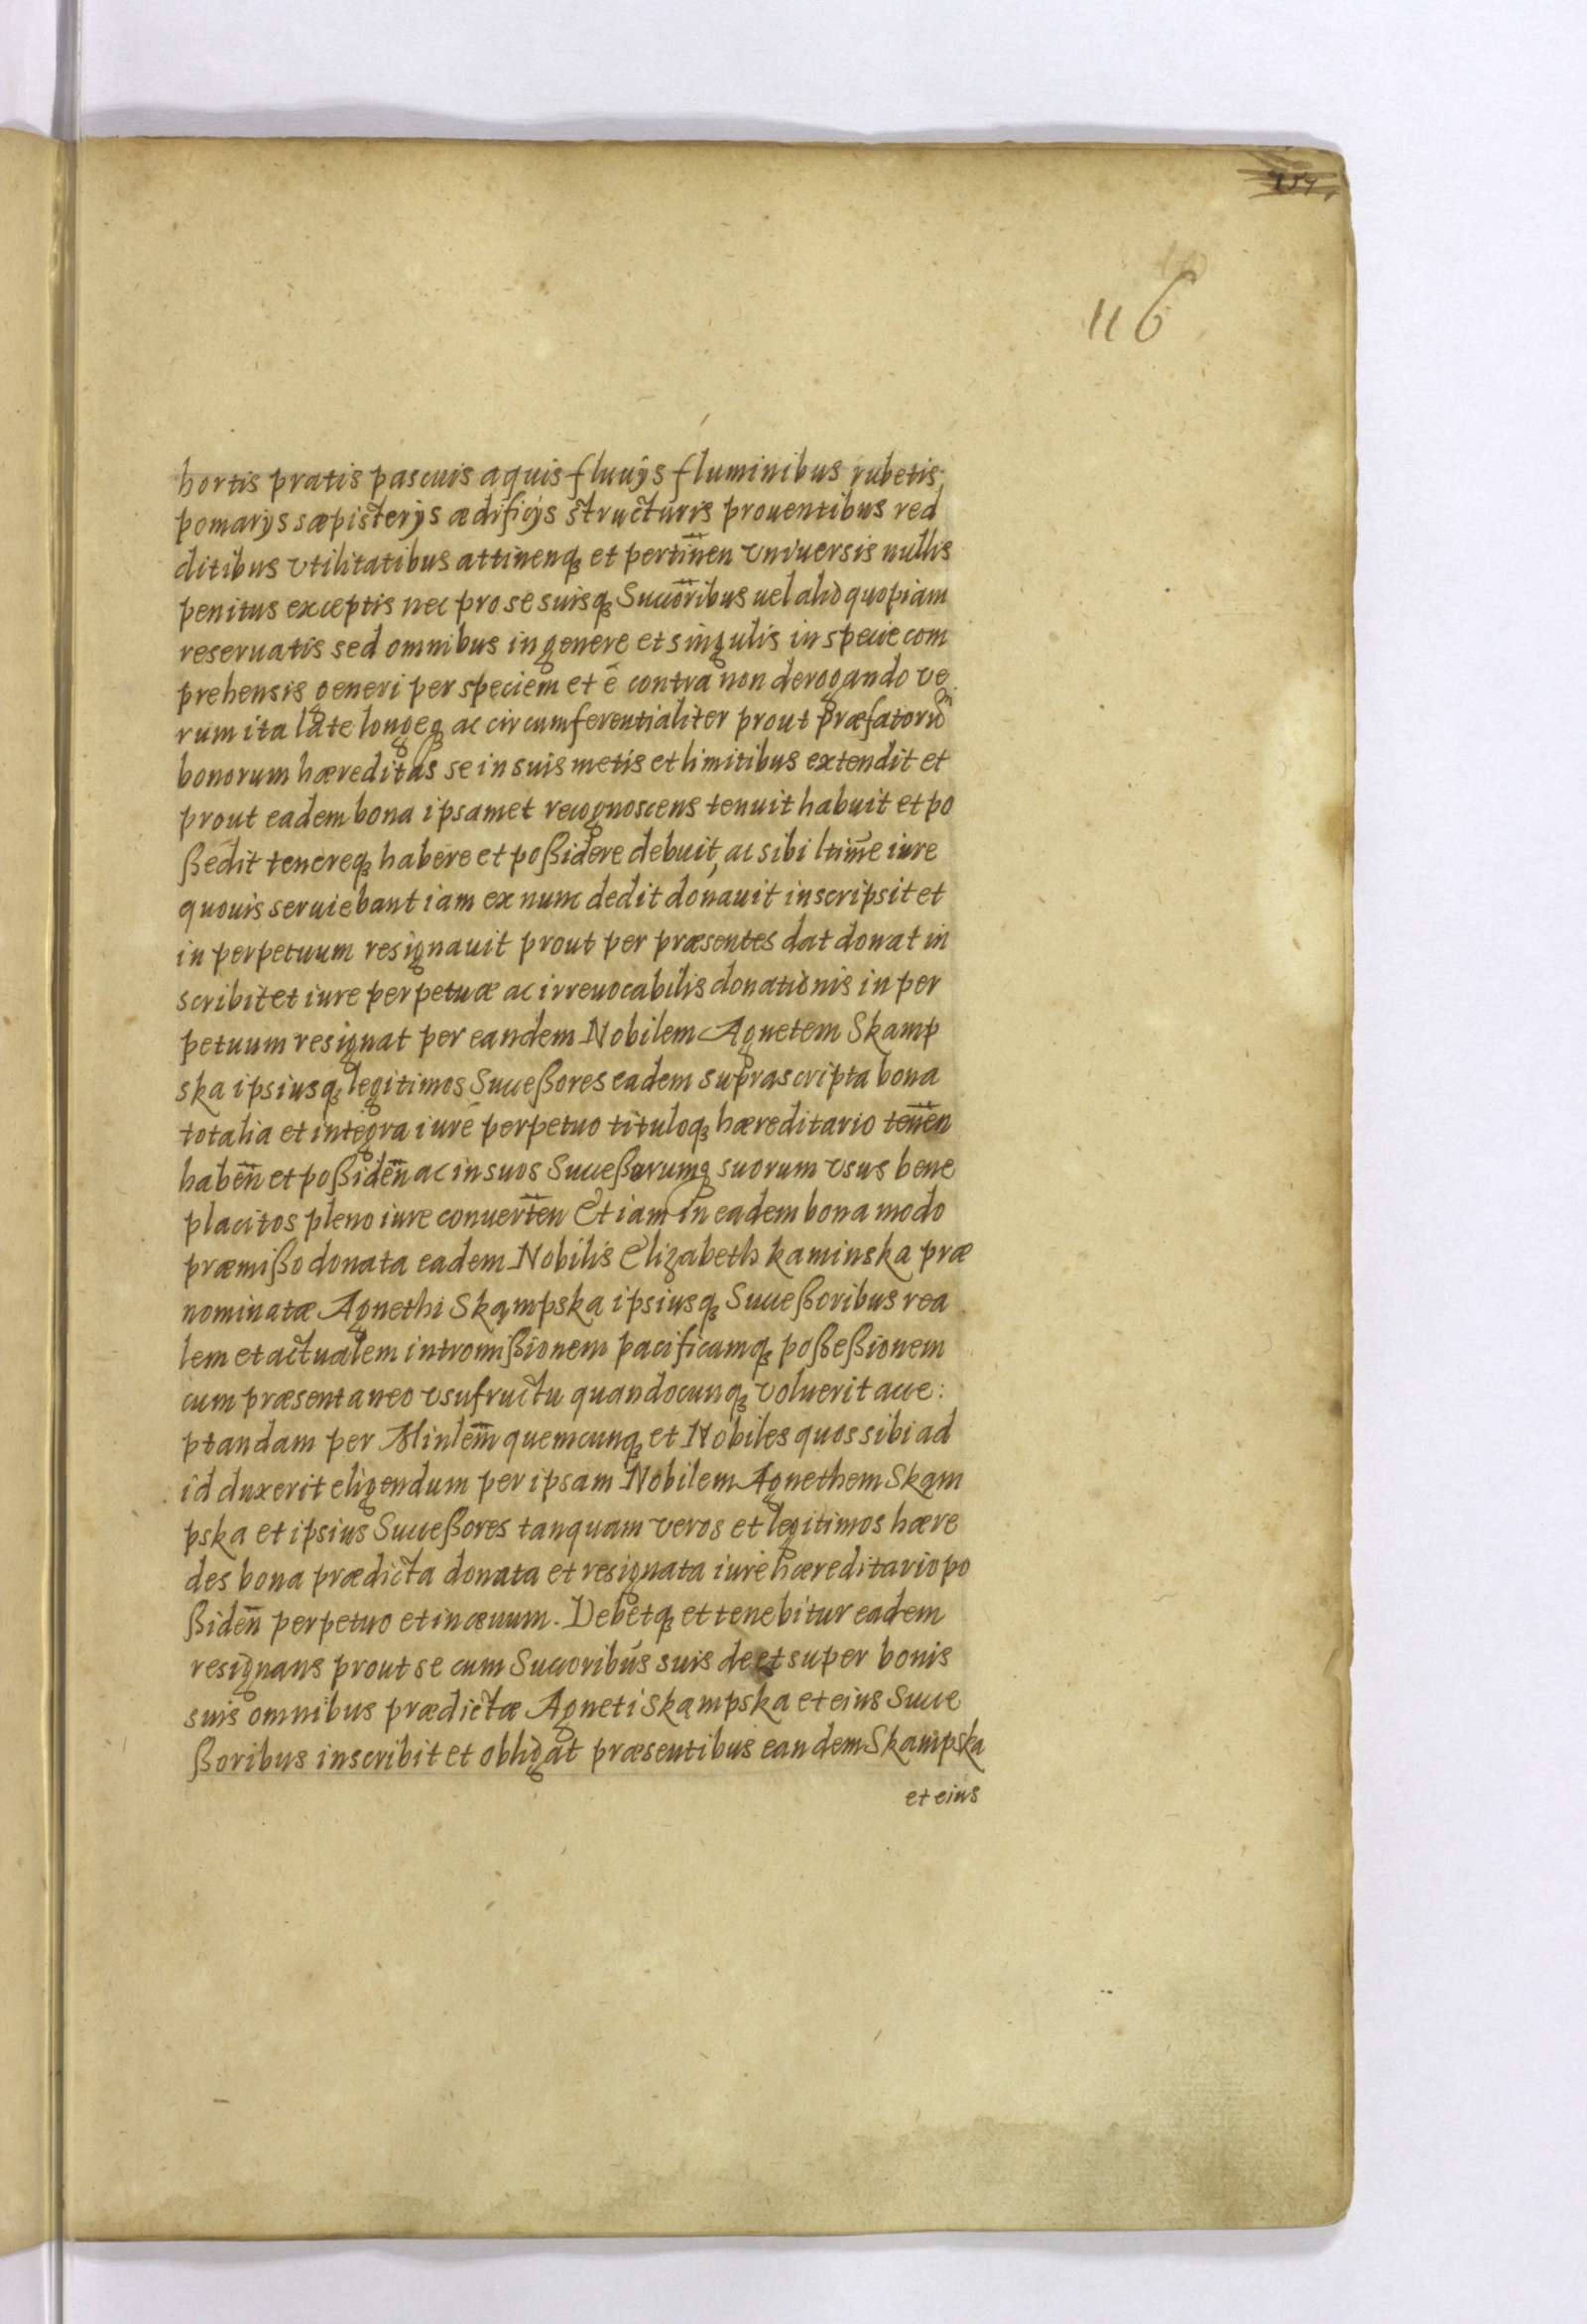 116
hortis pratis pascuis aquis fluuÿs fluminibus rubetis
pomarÿs sæpisterÿs ædificÿs structuris prouentibus red
ditibus vtilitatibus attinenq₃ et pertineñ vniuersis nullis
penitus exceptis nec pro se suisq₃ Succoribus uel alio quopiam
reseruatis sed omnibus in genere et singulis in specie com
prehensis generi per speciem et é contra non derogando ve
rum ita late longeq₃ ac circumferentialiter prout præfatorū
bonorum hæreditas se in suis metis et limitibus extendit et
prout eadem bona ipsamet recognoscens tenuit habuit et po
ßedit tenereq₃ habere et poßidere debuit, ac sibi ltime iure
quouis seruiebant iam ex nunc dedit donauit inscripsit et
in perpetuum resignauit prout per præsentes dat donat in
scribit et iure perpetuæ ac irreuocabilis donationis in per
petuum resignat per eandem Nobilem Agnetem Skamp
ska ipsiusq₃ legitimos Succeßores eadem suprascripta bona
totalia et integra iure perpetuo tituloq₃ hæreditario teneñ
habeñ et poßideñ ac in suos Succeßorumq₃ suorum vsus bene
placitos pleno iure conuerteñ Et iam in eadem bona modo
præmißo donata eadem Nobilis Elizabeth kaminska præ
nominatæ Agnethi Skampska ipsiusq₃ Succeßoribus rea
lem et actualem intromißionem pacificamq₃ poßeßionem
cum præsentaneo vsufructu quandocunq₃ voluerit acce:
ptandam per Minlem̄ quemcunq₃ et Nobiles quos sibi ad
id duxerit eligendum per ipsam Nobilem Agnethem Skam
pska et ipsius Succeßores tanquam veros et legitimos hære
des bona prædicta donata et resignata iure hæreditario po
ßideñ perpetuo et in æuum. Debetq₃ et tenebitur eadem
resignans prout se cum Succoribus suis de et super bonis
suis omnibus prædictæ Agneti Skampska et eius Succe
ßoribus inscribit et obligat præsentibus eandem Skampska
et eius